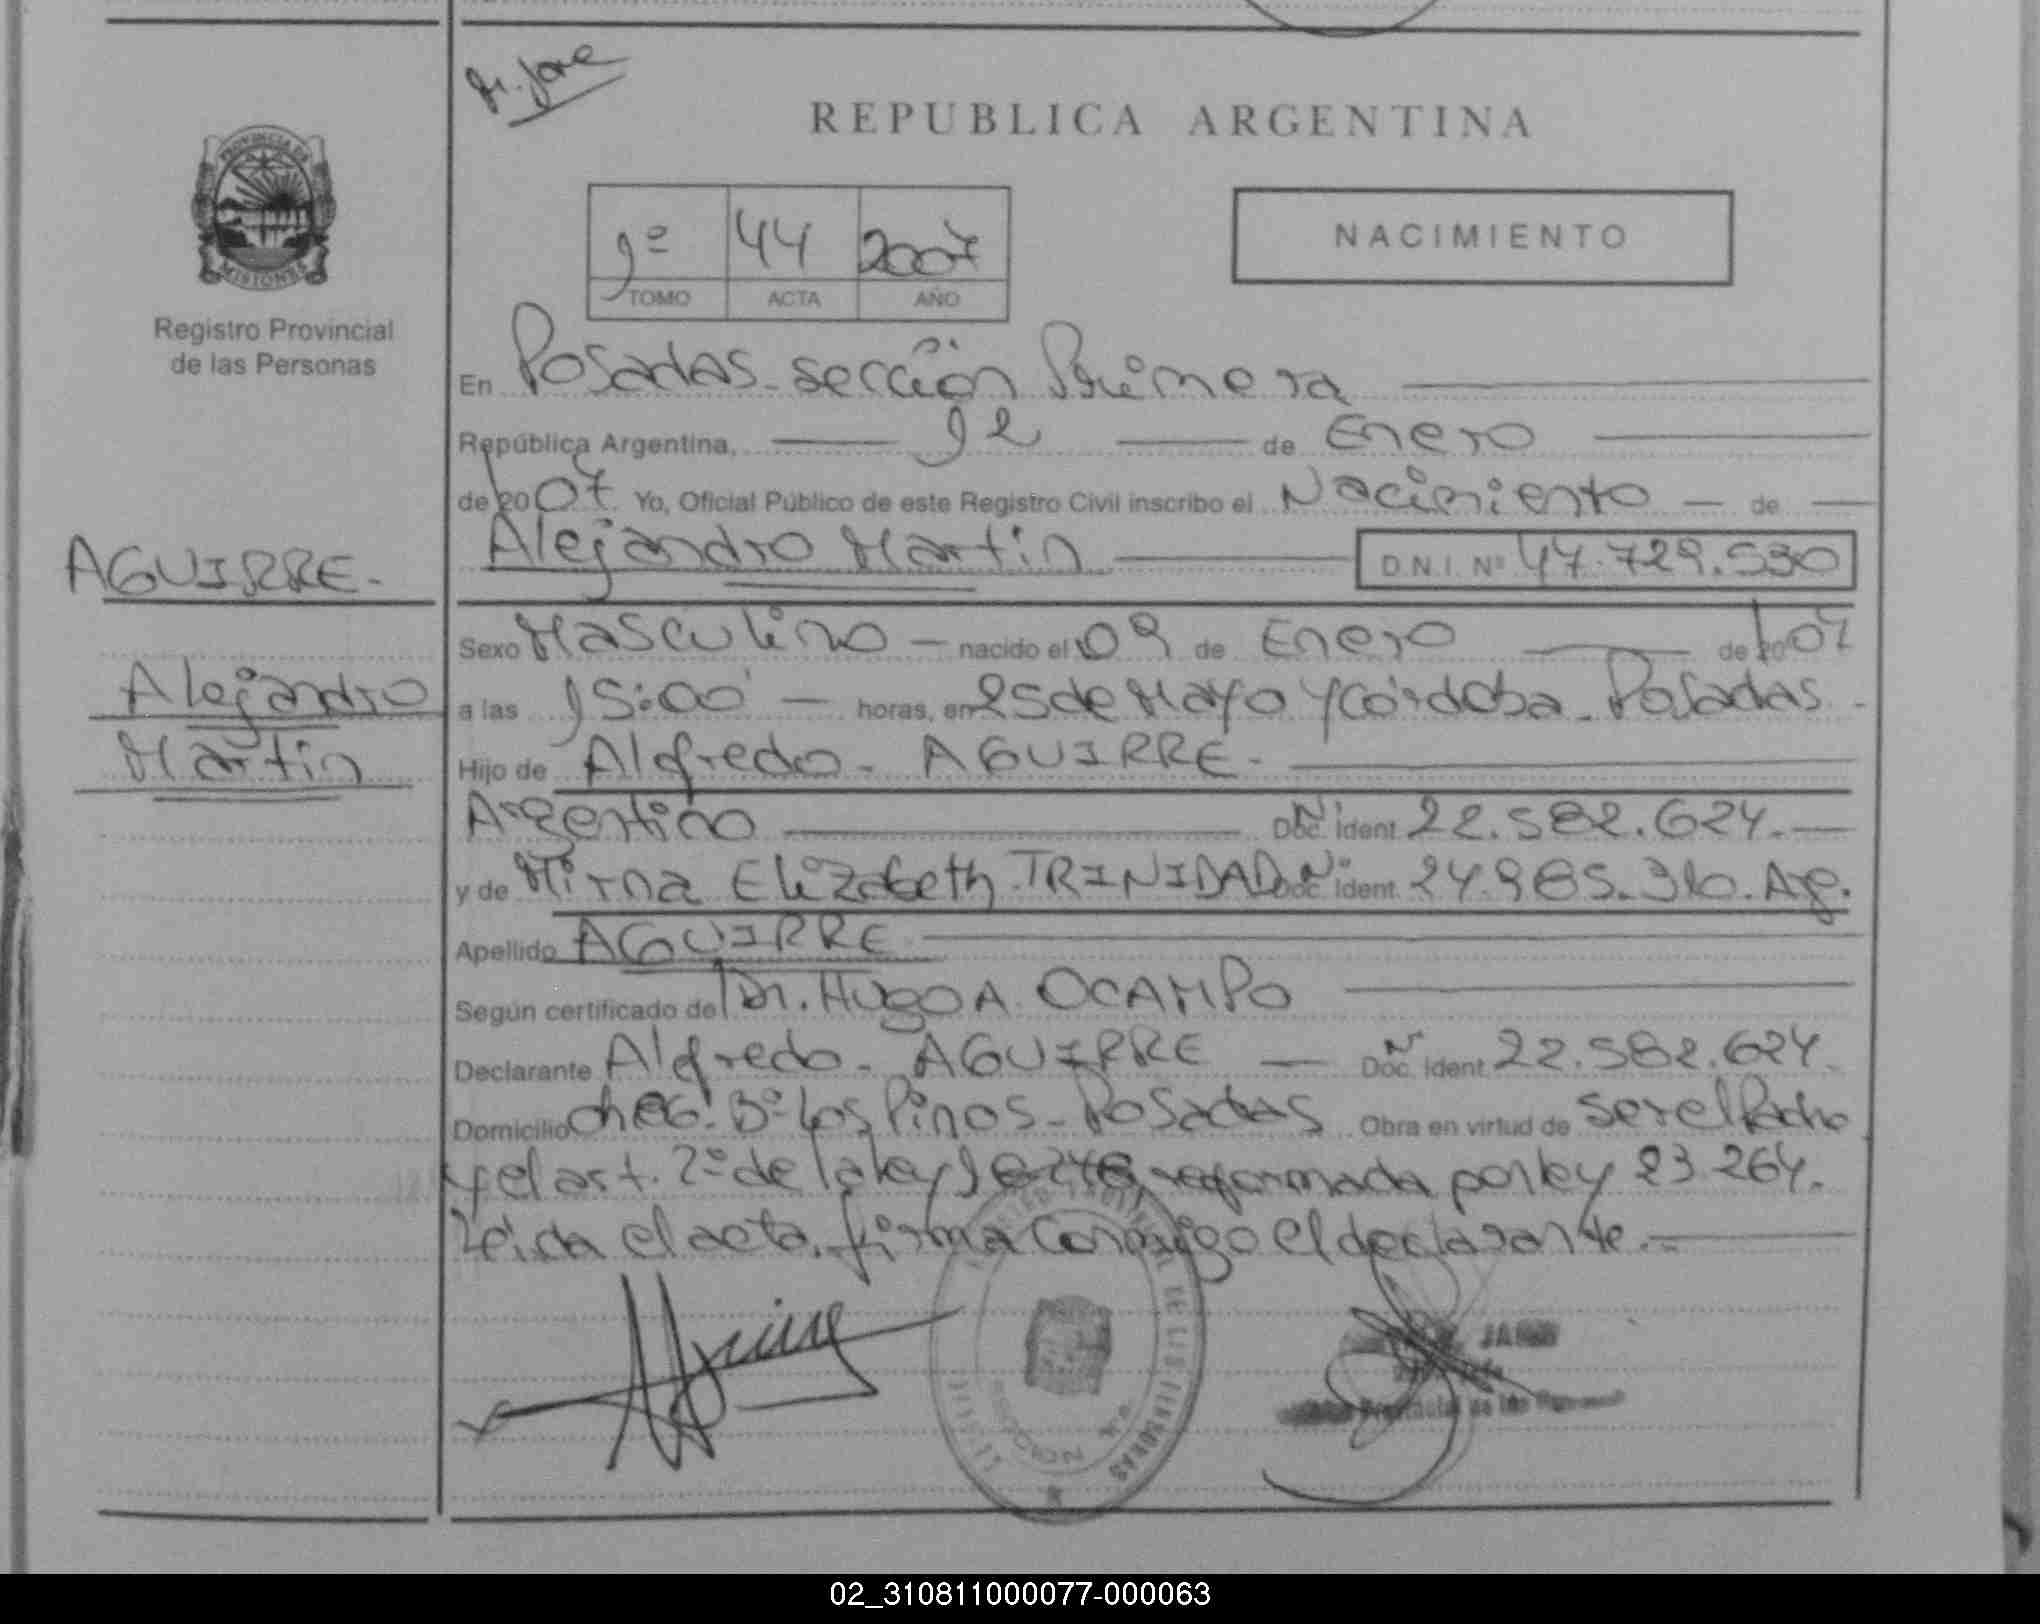 Dr. Jore
REPUBLICA ARGENTINA
PROVINCIA DE MISIONES
1º 44 2007
TOMO ACTA AÑO
NACIMIENTO
Registro Provincial
de las Personas
En Posadas - sección Primera
República Argentina, 12 de Enero
de 2007 Yo, Oficial Público de este Registro Civil inscribo el Nacimiento - de
AGUIRRE.
Alejandro Martin D.N.I. Nº 47.729.530
Alejandro
Martin
Sexo Masculino - nacido el 09 de Enero de 2007
a las 15:00 - horas, en 25 de Mayo y Córdoba - Posadas -
Hijo de Alfredo - AGUIRRE -
Argentino Doc. Ident. Nº 22.582.624.
y de Mirna Elizabeth TRINIDAD Doc. Ident. Nº 24.985.310. Arg.
Apellido AGUIRRE
Según certificado de Dr. Hugo A. OCAMPO
Declarante Alfredo - AGUIRRE - Doc. Ident. Nº 22.582.624.
Domicilio ch 66. Bº Los Pinos - Posadas Obra en virtud de ser el Padre
y el art. 2º de la ley 18248 reformada por ley 23.264.
Leída el acta, firma conmigo el declarante.-
Provincial de las
02_310811000077-000063